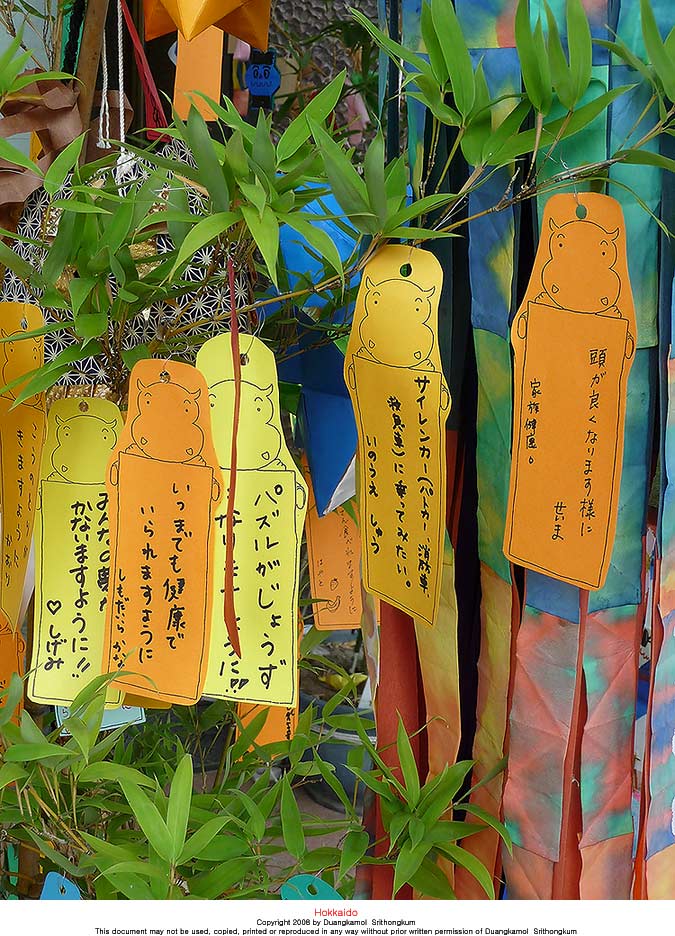 頭が良くなります様に
せいま
家族健康。
サイレンカー(パトカー、消防車、
救急車)に乗ってみたい。
いのうえ しゅう
パズルがじょうず
ように!!
いつまでも健康で
いられますように
しもだいら
みんなの
かないますように!!
♡しげみ
きますように
Hokkaido
Copyright 2008 by Duangkamol Srithongkum
This document may not be used, copied, printed or reproduced in any way wiithout prior written permission of Duangkamol Srithongkum